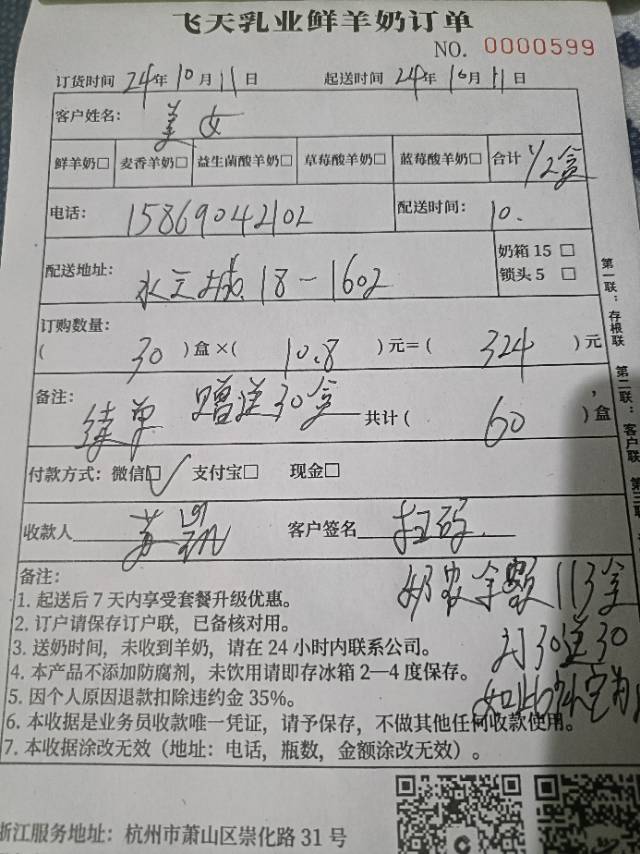 飞天乳业鲜羊奶订单
NO. 0000599
订货时间 24年10月11日 起送时间 24年10月11日
客户姓名: 美女
鲜羊奶□ 麦香羊奶□ 益生菌酸羊奶□ 草莓酸羊奶□ 蓝莓酸羊奶□ 合计 1/2盒
电话: 15869042102 配送时间: 10.
配送地址: 水立城.18-1602 奶箱 15 □
锁头 5 □
订购数量:
( 30 )盒×( 10.8 )元=( 324 )元
备注: 续单 赠送30盒 共计( 60 )盒
付款方式: 微信☑ 支付宝□ 现金□
收款人 客户签名 扫码
备注:
奶农余额113盒
1. 起送后 7 天内享受套餐升级优惠。
2. 订户请保存订户联，已备核对用。
订30送30
3. 送奶时间，未收到羊奶，请在 24 小时内联系公司。
4. 本产品不添加防腐剂，未饮用请即存冰箱 2—4 度保存。
5. 因个人原因退款扣除违约金 35%。
6. 本收据是业务员收款唯一凭证，请予保存，不做其他任何收款使用。
7. 本收据涂改无效（地址：电话，瓶数，金额涂改无效）。
浙江服务地址：杭州市萧山区崇化路 31 号
第一联：存根联
第二联：客户联
第三联